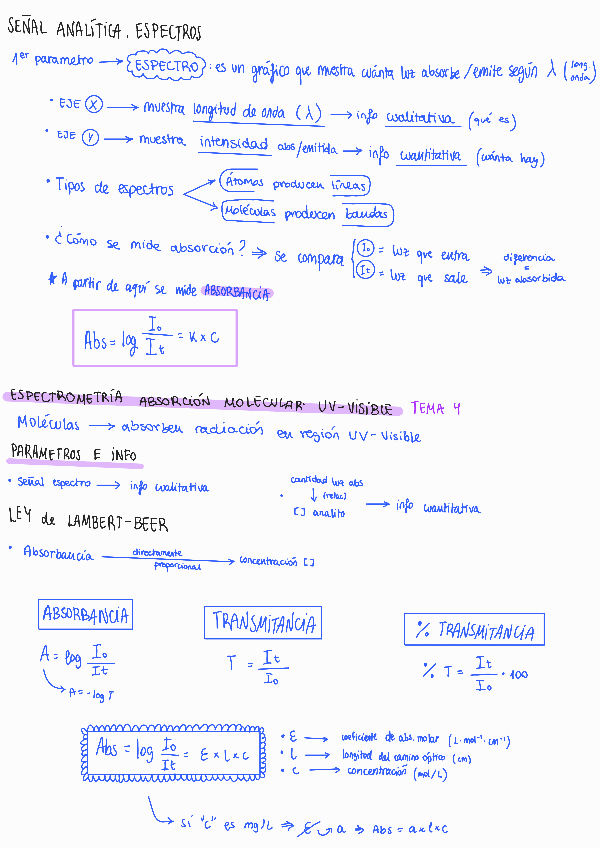 SEÑAL ANALÍTICA. ESPECTROS
1er parametro → ESPECTRO: es un gráfico que muestra cuánta luz absorbe/emite según λ (long. onda)
• EJE X → muestra longitud de onda (λ) → info cualitativa (qué es)
• EJE Y → muestra intensidad abs/emitida → info cuantitativa (cuánta hay)
• Tipos de espectros
Átomas producen líneas
Moléculas producen bandas
• ¿Cómo se mide absorción? ⇒ se compara
I₀ = luz que entra
It = luz que sale ⇒ diferencia = luz absorbida
* A partir de aquí se mide ABSORBANCIA
Abs = log I₀/It = K × C
ESPECTROMETRÍA ABSORCIÓN MOLECULAR UV-VISIBLE TEMA 4
Moléculas → absorben radiación en región UV-Visible
PARAMETROS E INFO
• Señal espectro → info cualitativa
• cantidad luz abs ↓ (relac) [] analito → info cuantitativa
LEY de LAMBERT-BEER
• Absorbancia directamente proporcional → concentración []
ABSORBANCIA TRANSMITANCIA % TRANSMITANCIA
A = log I₀/It T = It/I₀ % T = It/I₀ · 100
→ A = -log T
Abs = log I₀/It = ε × l × c
• ε → coeficiente de abs. molar (L·mol⁻¹·cm⁻¹)
• l → longitud del camino óptico (cm)
• c → concentración (mol/L)
→ si "c" es mg/L ⇒ ε → a ⇒ Abs = a×l×c